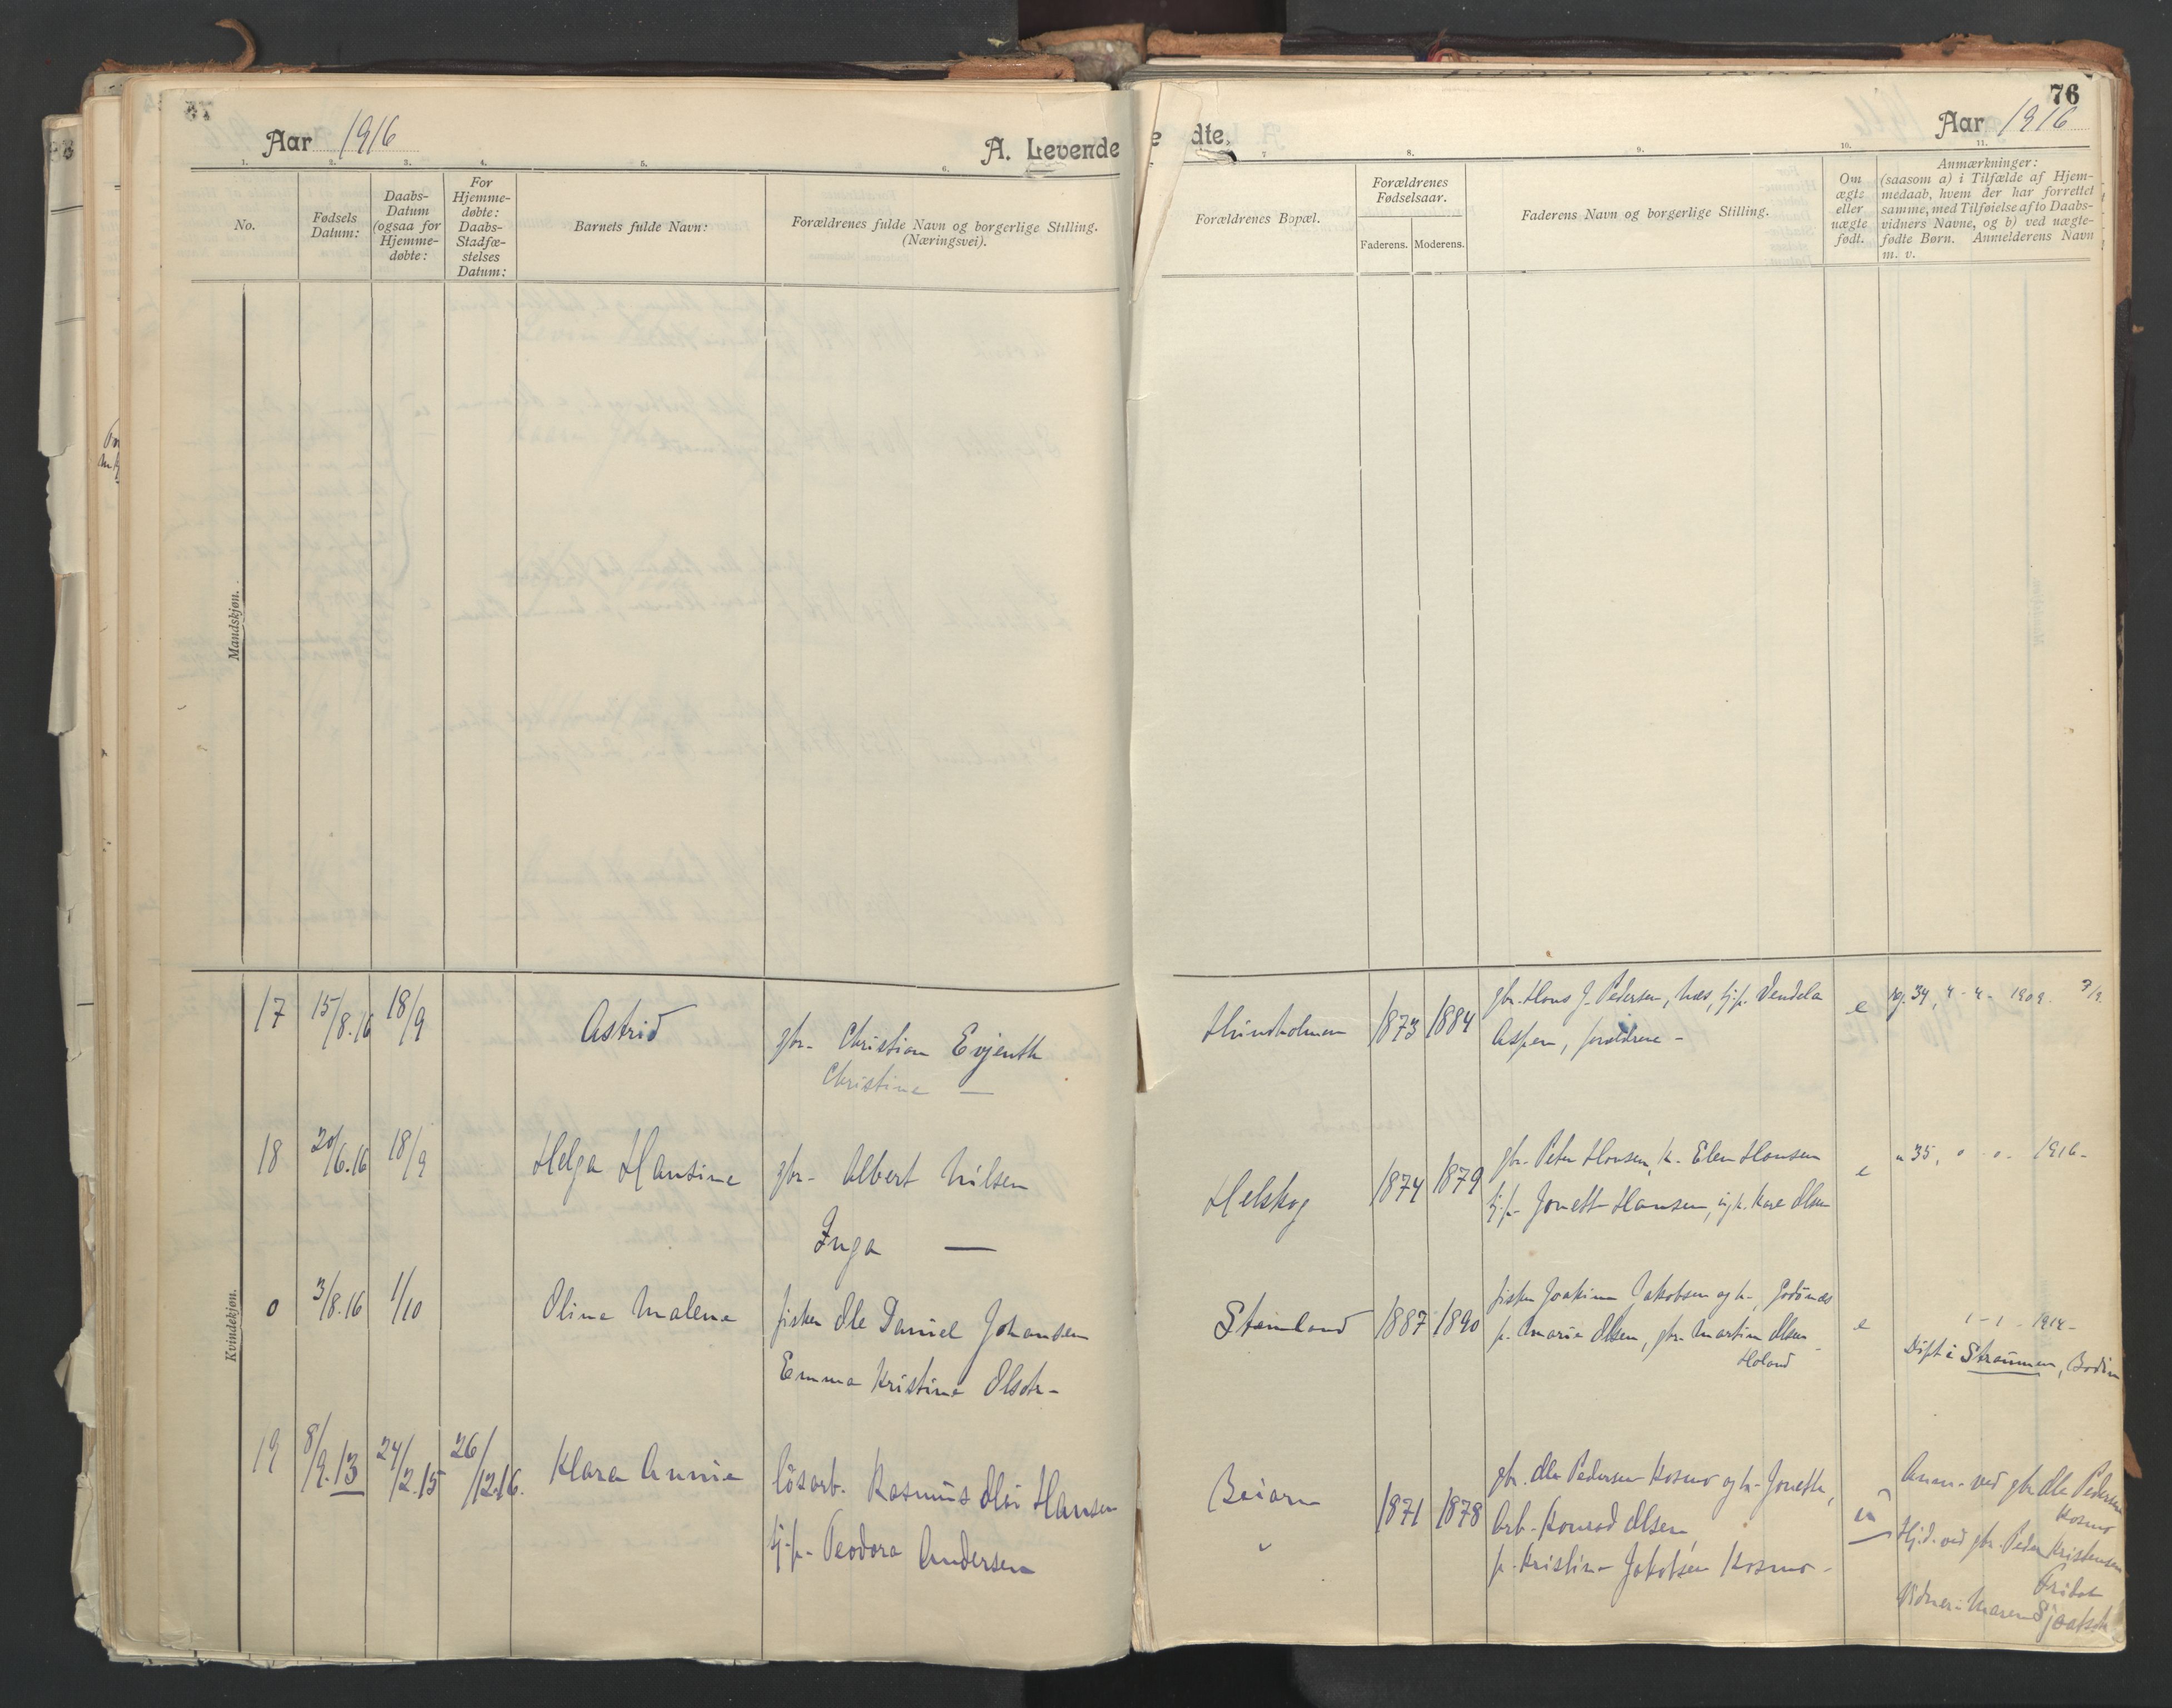 Aar 1916
A. Levende
1. 2. 3. 4. 5. 6.
No.
Fødsels Datum:
Daabs-Datum (ogsaa for Hjemme-døbte:
For Hjemme-døbte: Daabs-Stadfæ-stelses Datum:
Barnets fulde Navn:
Forældrenes fulde Navn og borgerlige Stilling. (Næringsvei).
Mandskjøn.
Kvindekjøn.
17 15/8.16 18/9 Astrid gbr. Christian Evjenth
Christine —
18 20/6.16 18/9 Helga Hansine gbr. Albert Nilsen
Inga —
0 3/8.16 1/10 Oline Malene fisker Ole Daniel Johansen
Emma Kristine Olsdtr.
19 8/9.13 24/2.15 26/12.16. Klara Annie løsarb. Rasmus Hansen
tj.p. Teodora Andersen
76
dte.
Aar 1916
7 8. 9. 10. 11.
Forældrenes Bopæl.
Forældrenes Fødselsaar.
Faderens. Moderens.
Faderens Navn og borgerlige Stilling.
Om ægte eller uægte født.
Anmærkninger:
(saasom a) i Tilfælde af Hjem-
medaab, hvem der har forrettet
samme, med Tilføielse af to Daabs-
vidners Navne, og b) ved uægte-
fødte Børn. Anmelderens Navn
m. v.
Hundholmen 1873 1884 gbr. Hans J. Pedersen, Næs, tj.p. Vendela
Aspen, forældrene - e rg. 34, 1909.
Helskog 1874 1879 gbr. Peter Hansen, k. Elen Hansen
tj.p. Jonette Hansen, Olsen e " 35, 1916.
Steinland 1887 1890 fisker Joakim Jakobsen og h., Godønes
p. Marie Olsen, gbr. Martin Olsen
Holand e 1914.
Døpt i Straumen, Bodin
Beiarn 1871 1878 gbr. Ole Pedersen Kosmo og h. Jonette,
Arb. Konrad Olsen,
p. Kristine Jakobsen Kosmo. u
Anm. ved gbr. Ole Pedersen
Kosmo
Hj.d. ved gbr. Peder Kristensen
Vidner: Maren